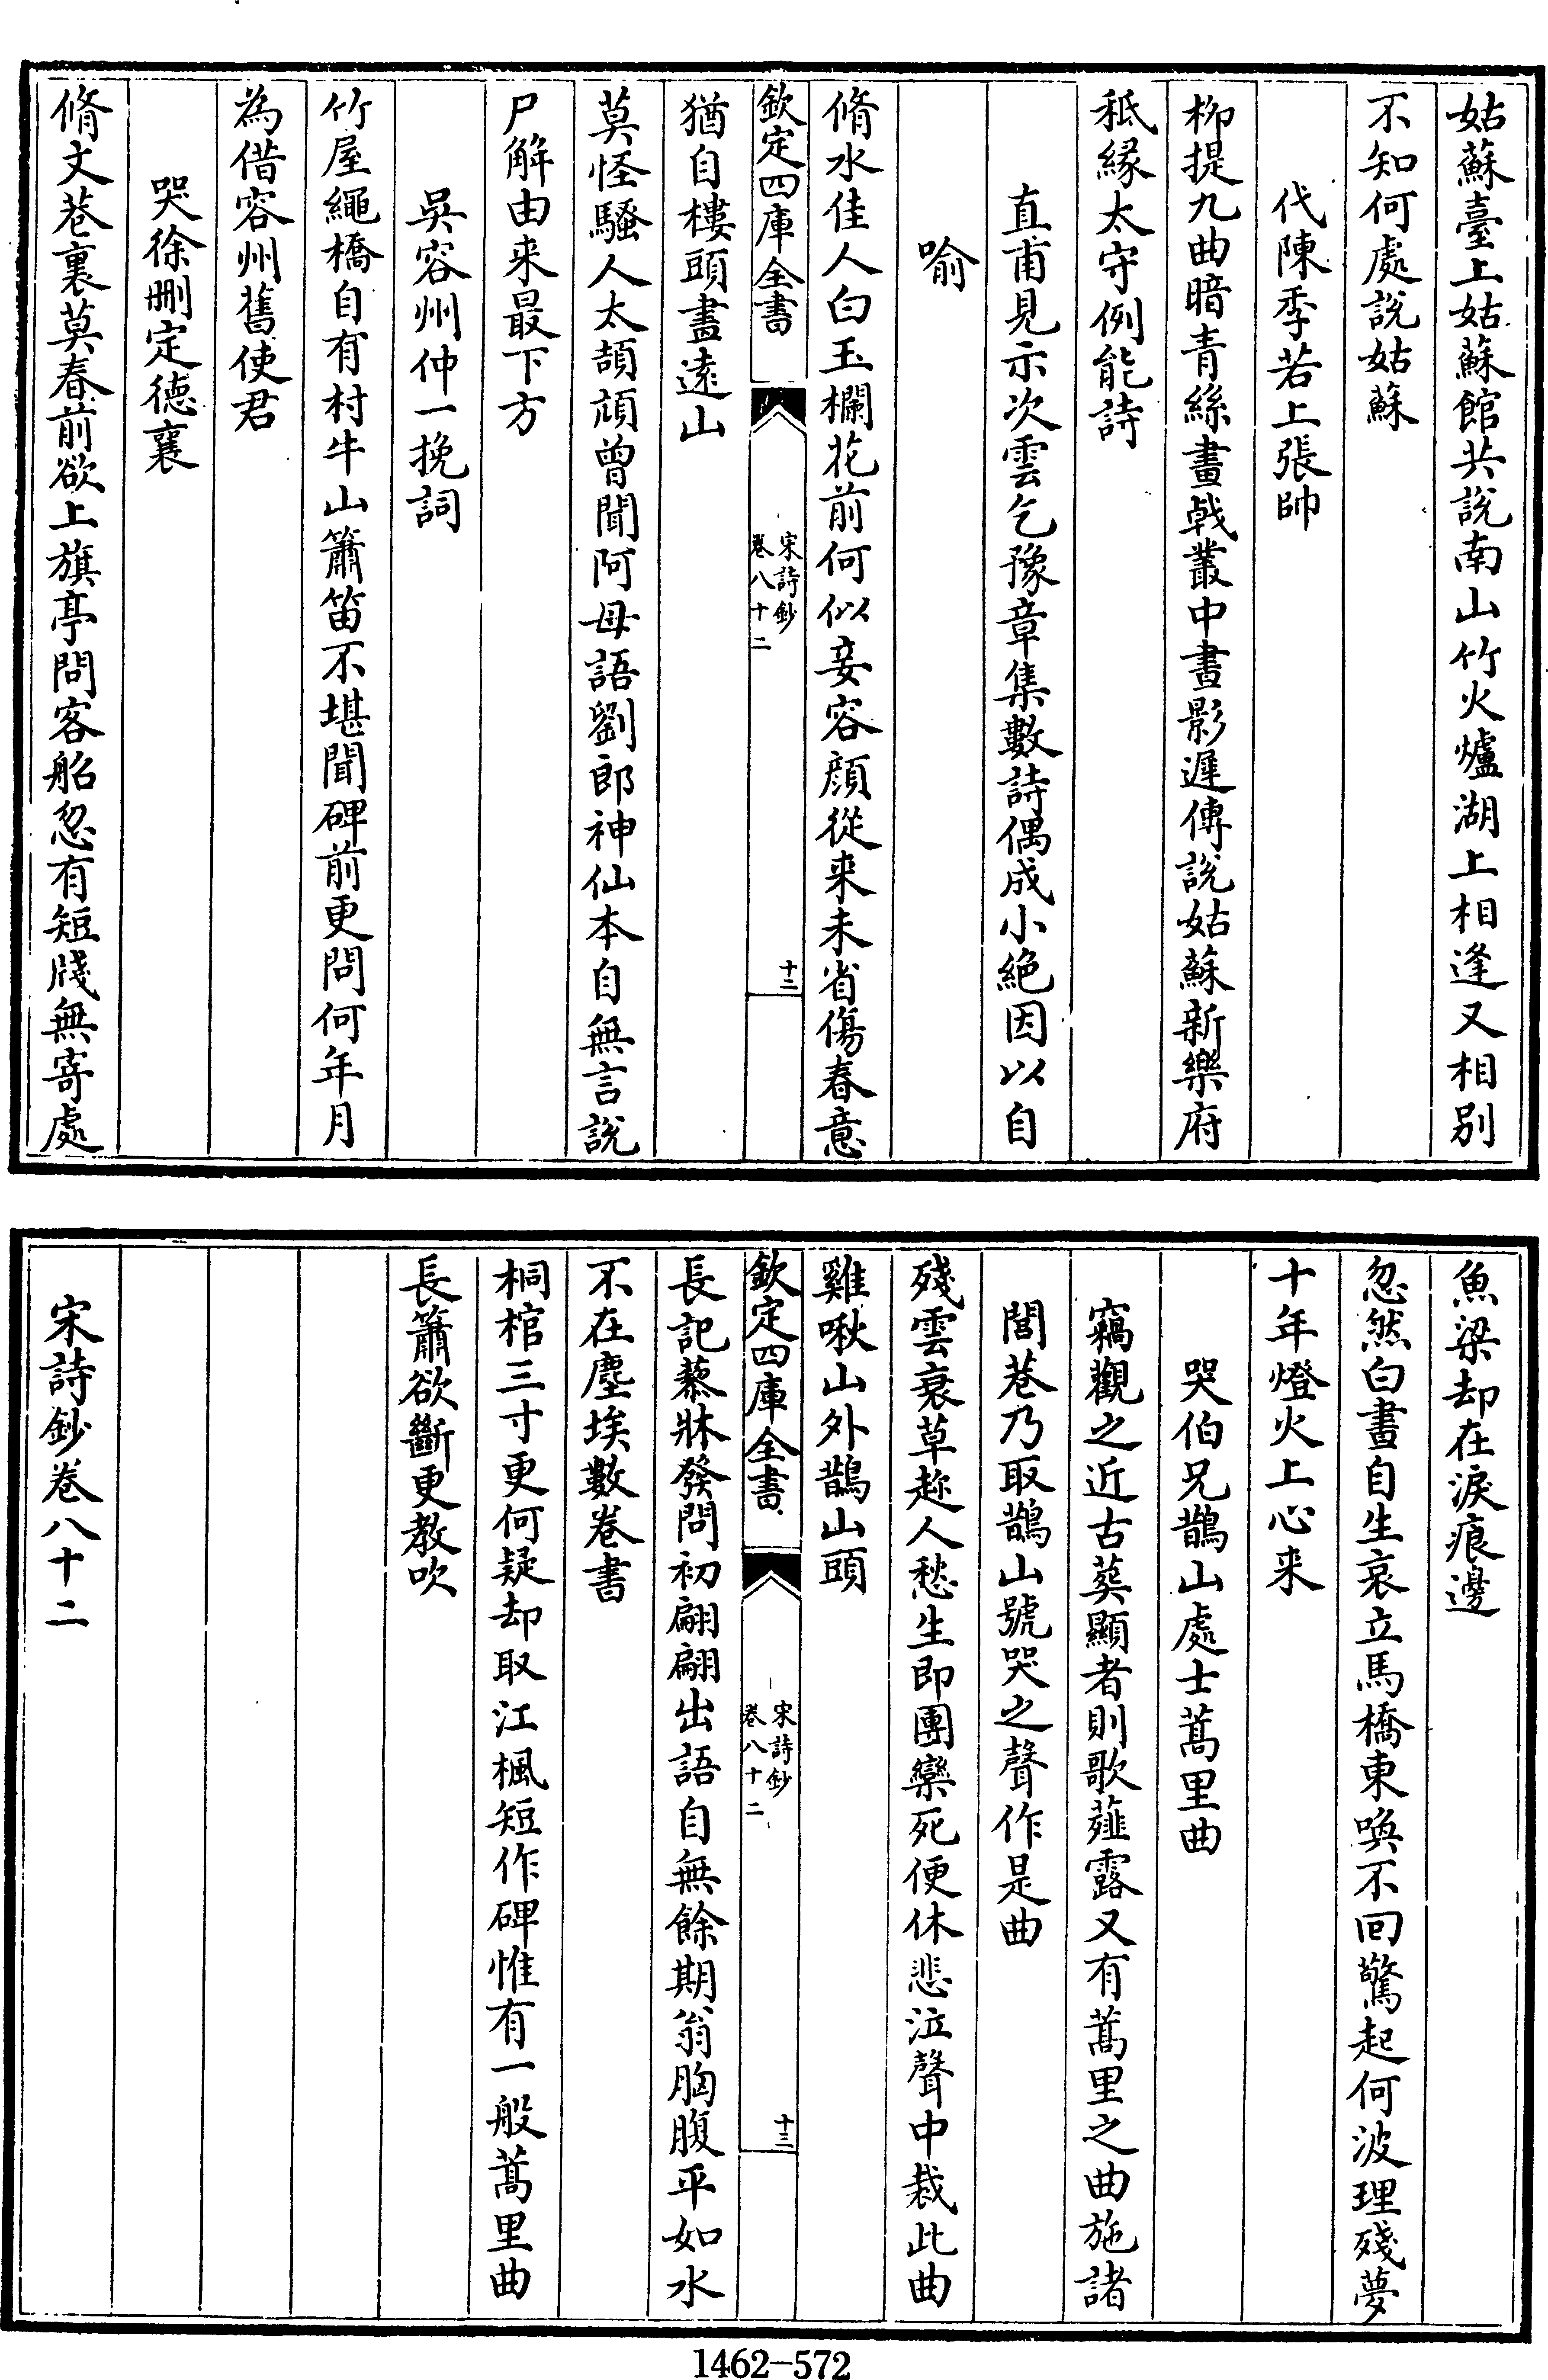 姑蘇臺上姑蘇館共說南山竹火爐湖上相逢又相別
不知何處說姑蘇
代陳季若上張帥
柳提九曲暗青絲畫戟叢中晝影遲傳說姑蘇新樂府
秪緣太守例能詩
直甫見示次雲乞豫章集數詩偶成小絕因以自
喻
脩水佳人白玉欄花前何似妾容顔從来未省傷春意
欽定四庫全書
宋詩鈔
卷八十二
十二
猶自樓頭畫遠山
莫怪騷人太頡頏曾聞阿母語劉郎神仙本自無言說
尸解由来最下方
吳容州仲一挽詞
竹屋繩橋自有村牛山簫笛不堪聞碑前更問何年月
為借容州舊使君
哭徐刪定德襄
脩文巷裏莫春前欲上旗亭問客船忽有短牋無寄處
魚梁却在淚痕邊
忽然白晝自生哀立馬橋東喚不回驚起何波理殘夢
十年燈火上心来
哭伯兄鵲山處士蒿里曲
竊觀之近古葬顯者則歌薤露又有蒿里之曲施諸
閭巷乃取鵲山號哭之聲作是曲
殘雲衰草趂人愁生即團欒死便休悲泣聲中裁此曲
雞啾山外鵲山頭
欽定四庫全書
宋詩鈔
卷八十二
十三
長記藜牀發問初翩翩出語自無餘期翁胸腹平如水
不在塵埃數卷書
桐棺三寸更何疑却取江楓短作碑惟有一般蒿里曲
長簫欲斷更教吹
宋詩鈔卷八十二
1462-572